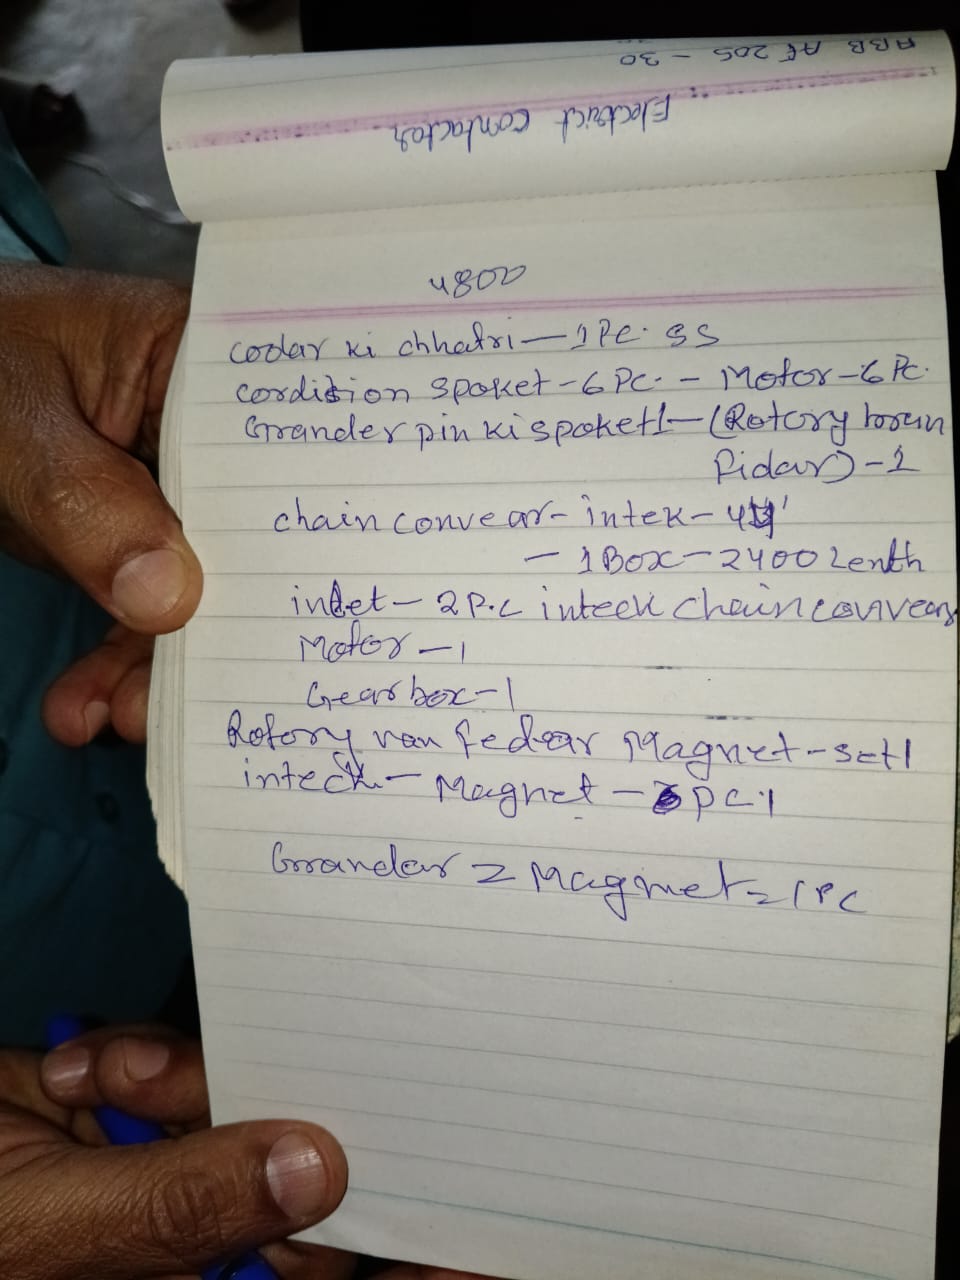 ABB AF 205 - 30
Electrict Contactor
coolar ki chhatri - 1 Pc. SS
cordition spoket - 6 Pc. - Motor - 6 Pc.
Grander pin ki spoket 1 - (Rotory
Fidar) - 1
chain convear - intek -
- 1 Box - 2400 Lenth
- 2 P.c inteck chain convear
Motor - 1
Gearbox - 1
Rotory van fedear Magnet - set 1
inteck - Magnet - PC. 1
Grandar = Magmet = 1 PC